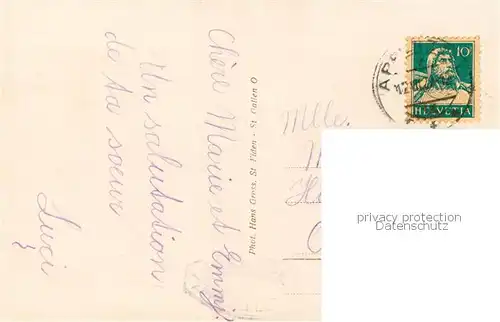 Chère Marie et Emmy.
Un salutation
de ta soeur
Luci
Phot. Hans Gross, St Fiden - St Gallen O
Mlle.
10
HELVETIA
AP
privacy protection
Datenschutz